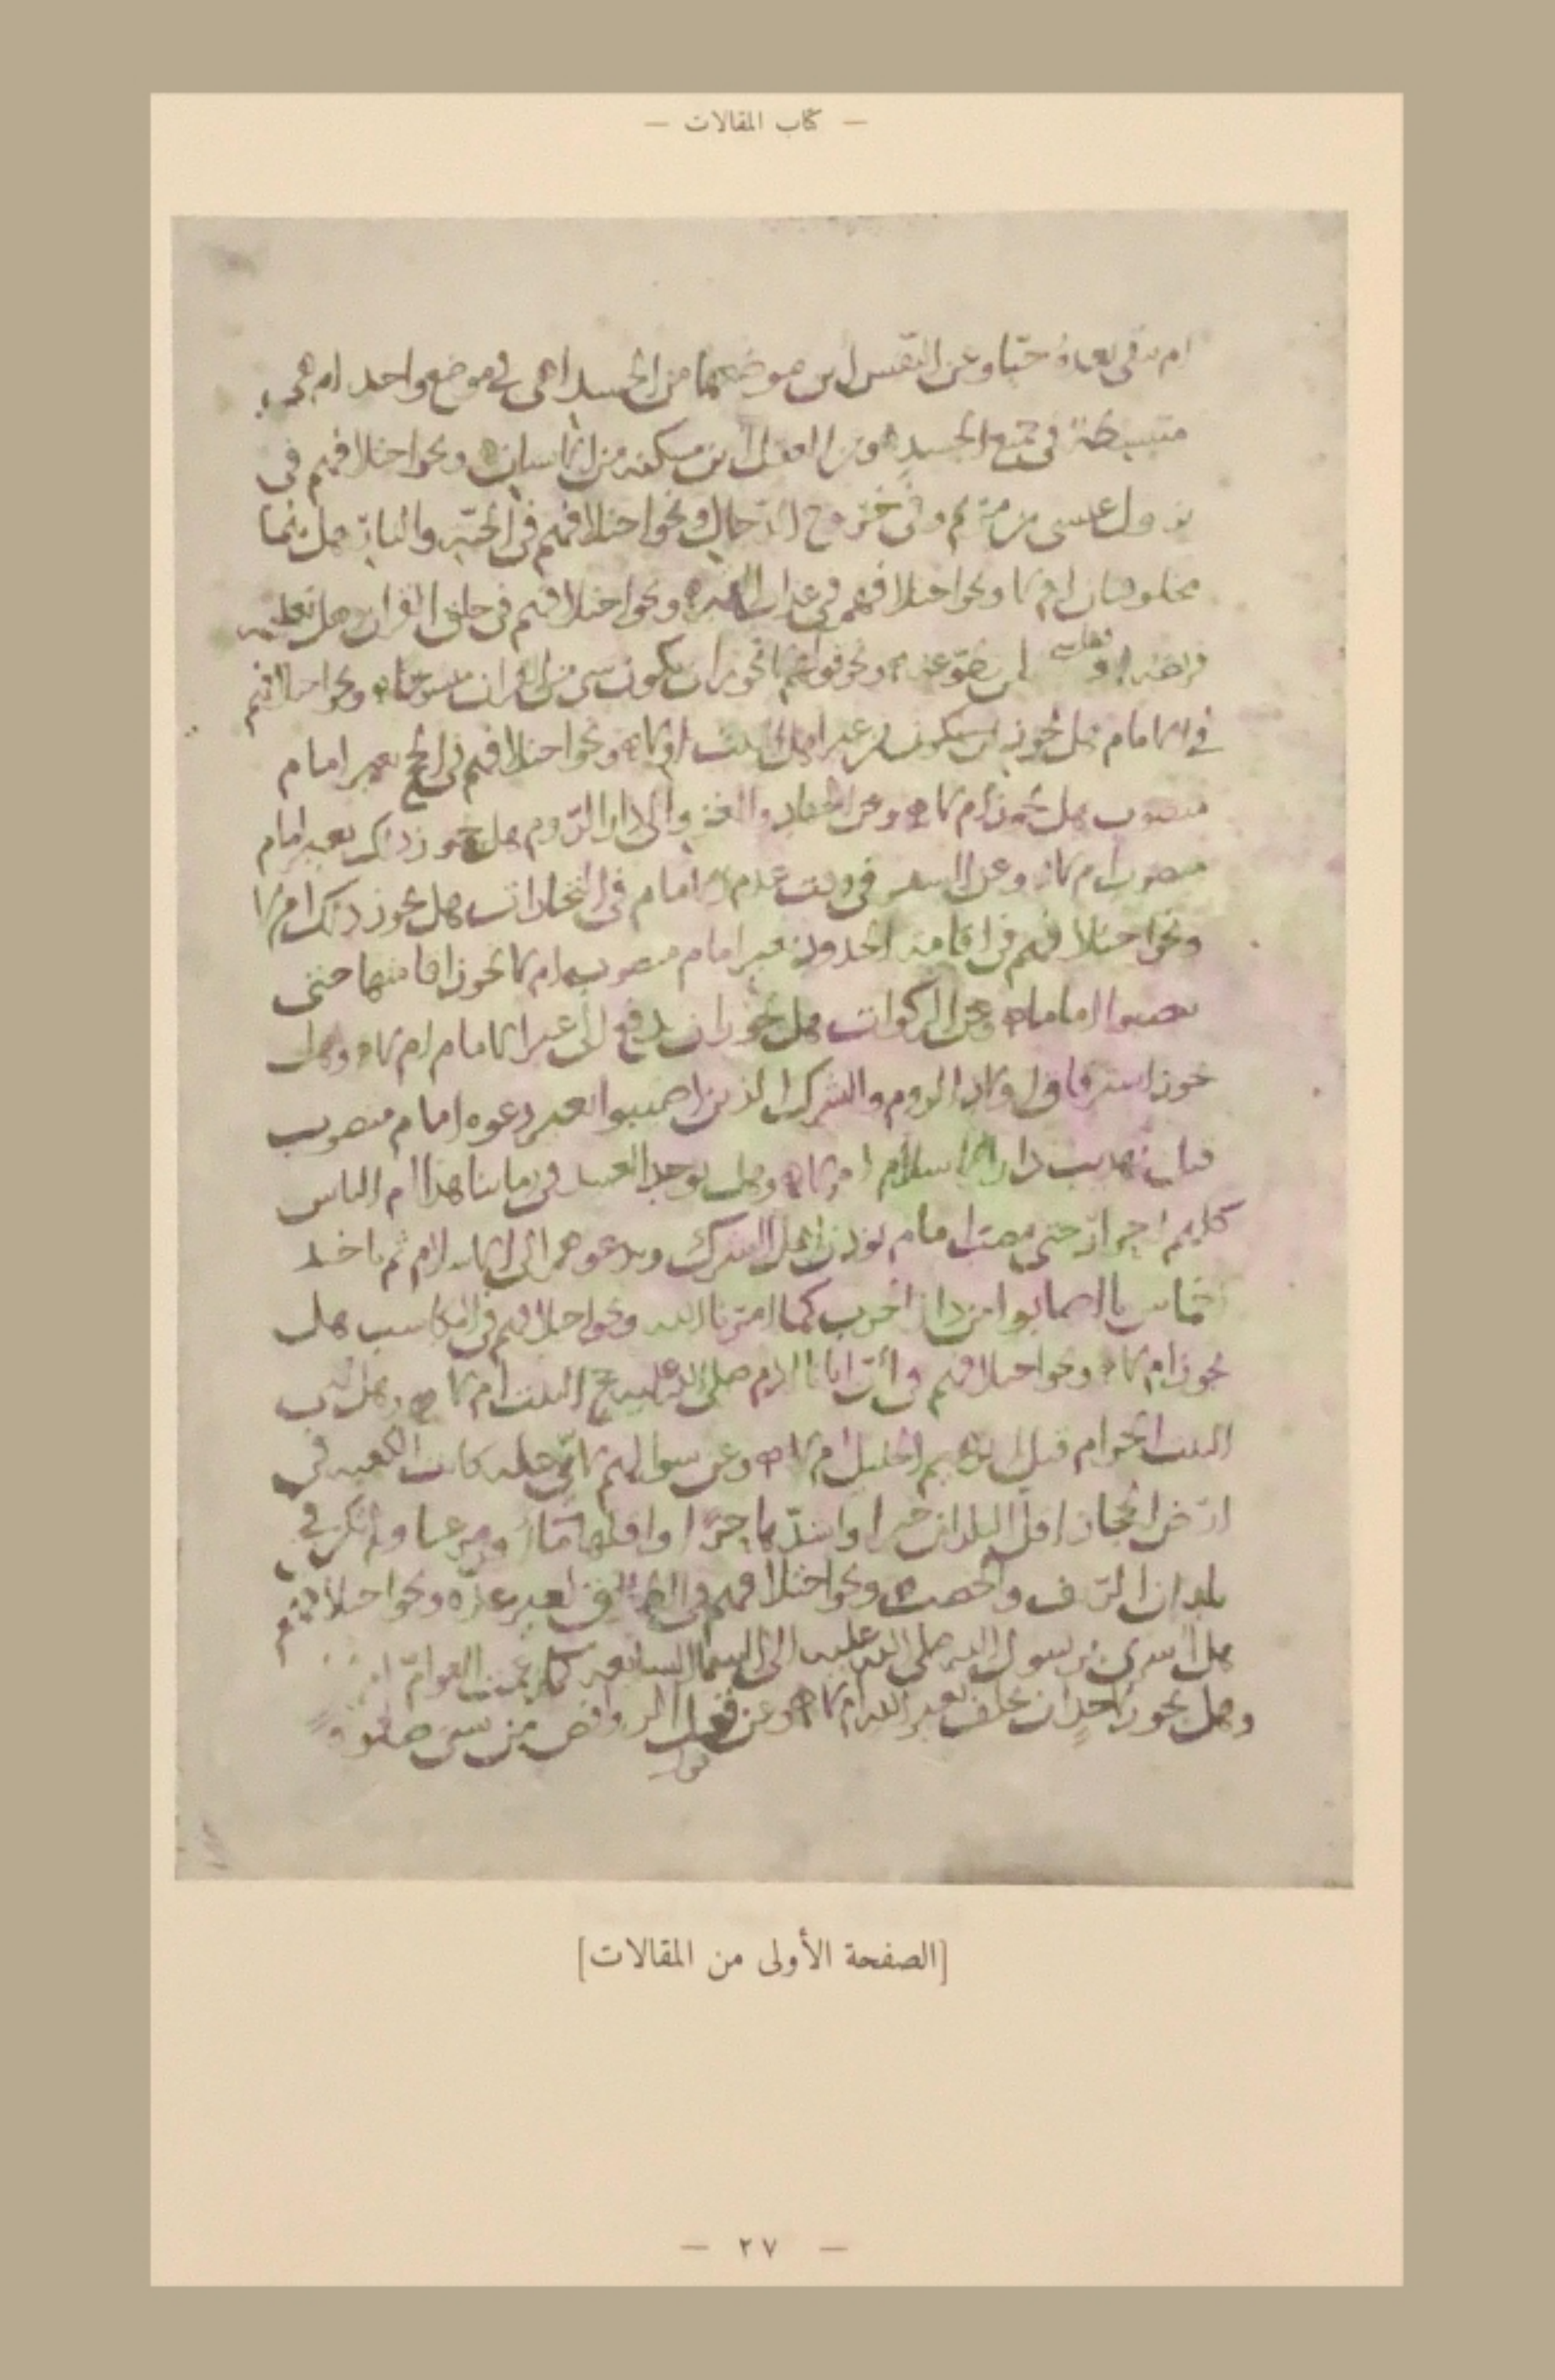 — كتاب المقالات —
ام يبقى بعده حيا وعن النفس اين موضعها من الجسد اهى فى موضع واحد ام هى
منبسطة فى جميع الجسد وعن العقل اين مسكنه من الانسان ونحو اختلافهم فى
نزول عيسى بن مريم وفى خروج الدجال ونحو اختلافهم فى الجنة والنار هل هما
مخلوقتان ام لا ونحو اختلافهم فى عذاب القبر ونحو اختلافهم فى خلق القران وهل
ونحو قولهم لا يجوز ان يكون شى من القران منسوخا ونحو اختلافهم
فى الامام هل يجوز ان يكون من غير اهل البيت ام لا ونحو اختلافهم فى الحج بغير امام
منصوب هل يجوز ام لا وعن الجهاد والغزو الى دار الروم هل يجوز ذلك بغير امام
منصوب ام لا وعن السفر فى وقت عدم الامام فى التجارات هل يجوز ذلك ام لا
ونحو اختلافهم فى اقامة الحدود بغير امام منصوب ام لا يجوز اقامتها حتى
ينصبوا اماما وعن الزكوات هل يجوز ان يدفع الى غير الامام ام لا وهل
يجوز استرقاق اولاد الروم والشرك الذين اصيبوا بغير دعوه امام منصوب
دار الاسلام ام لا وهل يوجد العبيد فى زماننا هذا ام الناس
كلهم احرار حتى امام اهل الشرك ويدعوهم الى الاسلام ثم ياخذ
اخماس ما اصابوا من دار الحرب كما امرنا الله ونحو اختلافهم فى المكاسب هل
يجوز ام لا ونحو اختلافهم فى ان ابانا ادم صلى الله عليه حج البيت ام لا وهل
البيت الحرام قبل ابرهيم الخليل ام لا وعن سوالهم لاى عله كانت الكعبه فى
ارض الحجاز اقل البلدان خيرا واشدها حرا واقلها ماء ومرعا ولم تكن فى
بلدان الريف والخصب ونحو اختلافهم فى الطلاق لغير عده ونحو اختلافهم
هل اسرى برسول الله صلى الله عليه الى السما السابعه كما العوام ام
وهل يجوز لاحد ان يحلف بغير الله ام لا وعن فعل الروافض
[الصفحة الأولى من المقالات]
— ٢٧ —